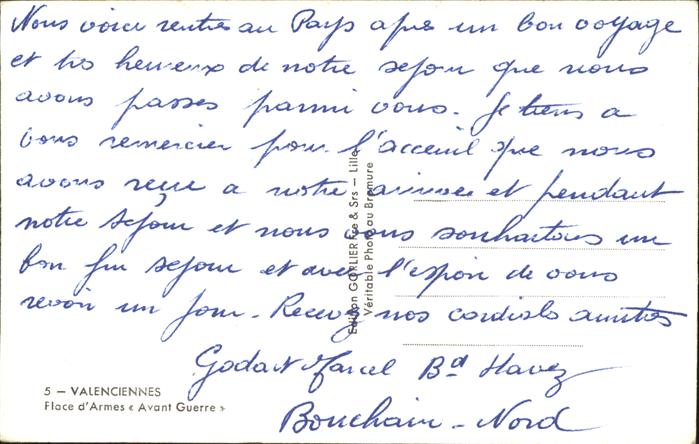 Nous voici rentrés au Pays apres un bon voyage
et tres heureux de notre sejour que nous
avons passes parmi vous. Je tiens a
vous remercier pour l'acceuil que nous
avons reçu a notre arrivee et pendant
notre sejour et nous vous souhaitons un
bon fin sejour et avec l'espoir de vous
revoir un jour. Recevez nos cordials amities
Godart Marcel Bd Havez
Bouchain - Nord
5 — VALENCIENNES
Place d'Armes « Avant Guerre »
Edition GORLIER Fre & Srs — Lille
Véritable Photo au Bromure